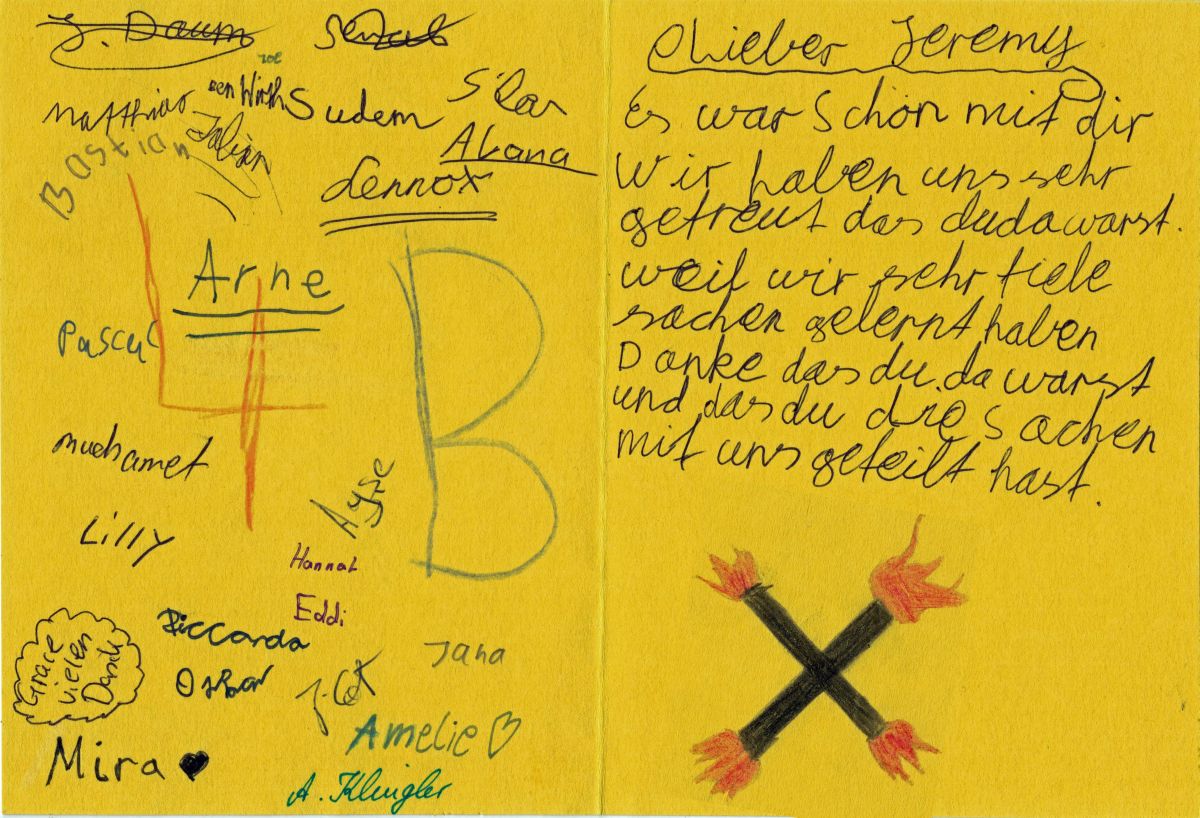 J. Daum
Zoe
Ben Wirth
Matthias
Sudem
Sılar
Bastian
Julian
Alana
Lennox
Arne
4
B
Pascal
muhamet
Ayse
Lilly
Hannah
Eddi
Riccarda
Jana
Grace
vielen
Dansk
Oskar
J. Cot
Amelie
Mira
A. Klingler
Lieber Jeremy
Es war Schön mit dir
Wir haben uns sehr
gefreut das du da warst.
weil wir sehr fiele
sachen gelernt haben
Danke das du da warst
und das du die Sachen
mit uns geteilt hast.